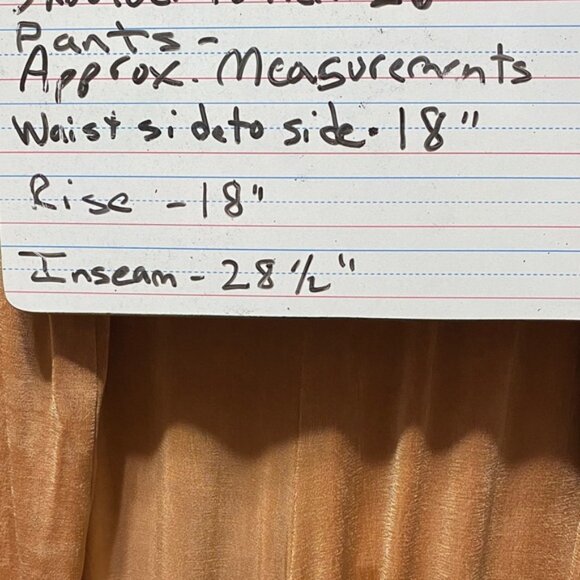 Pants -
Approx. Measurements
Waist side to side - 18"
Rise - 18"
Inseam - 28 1/2"